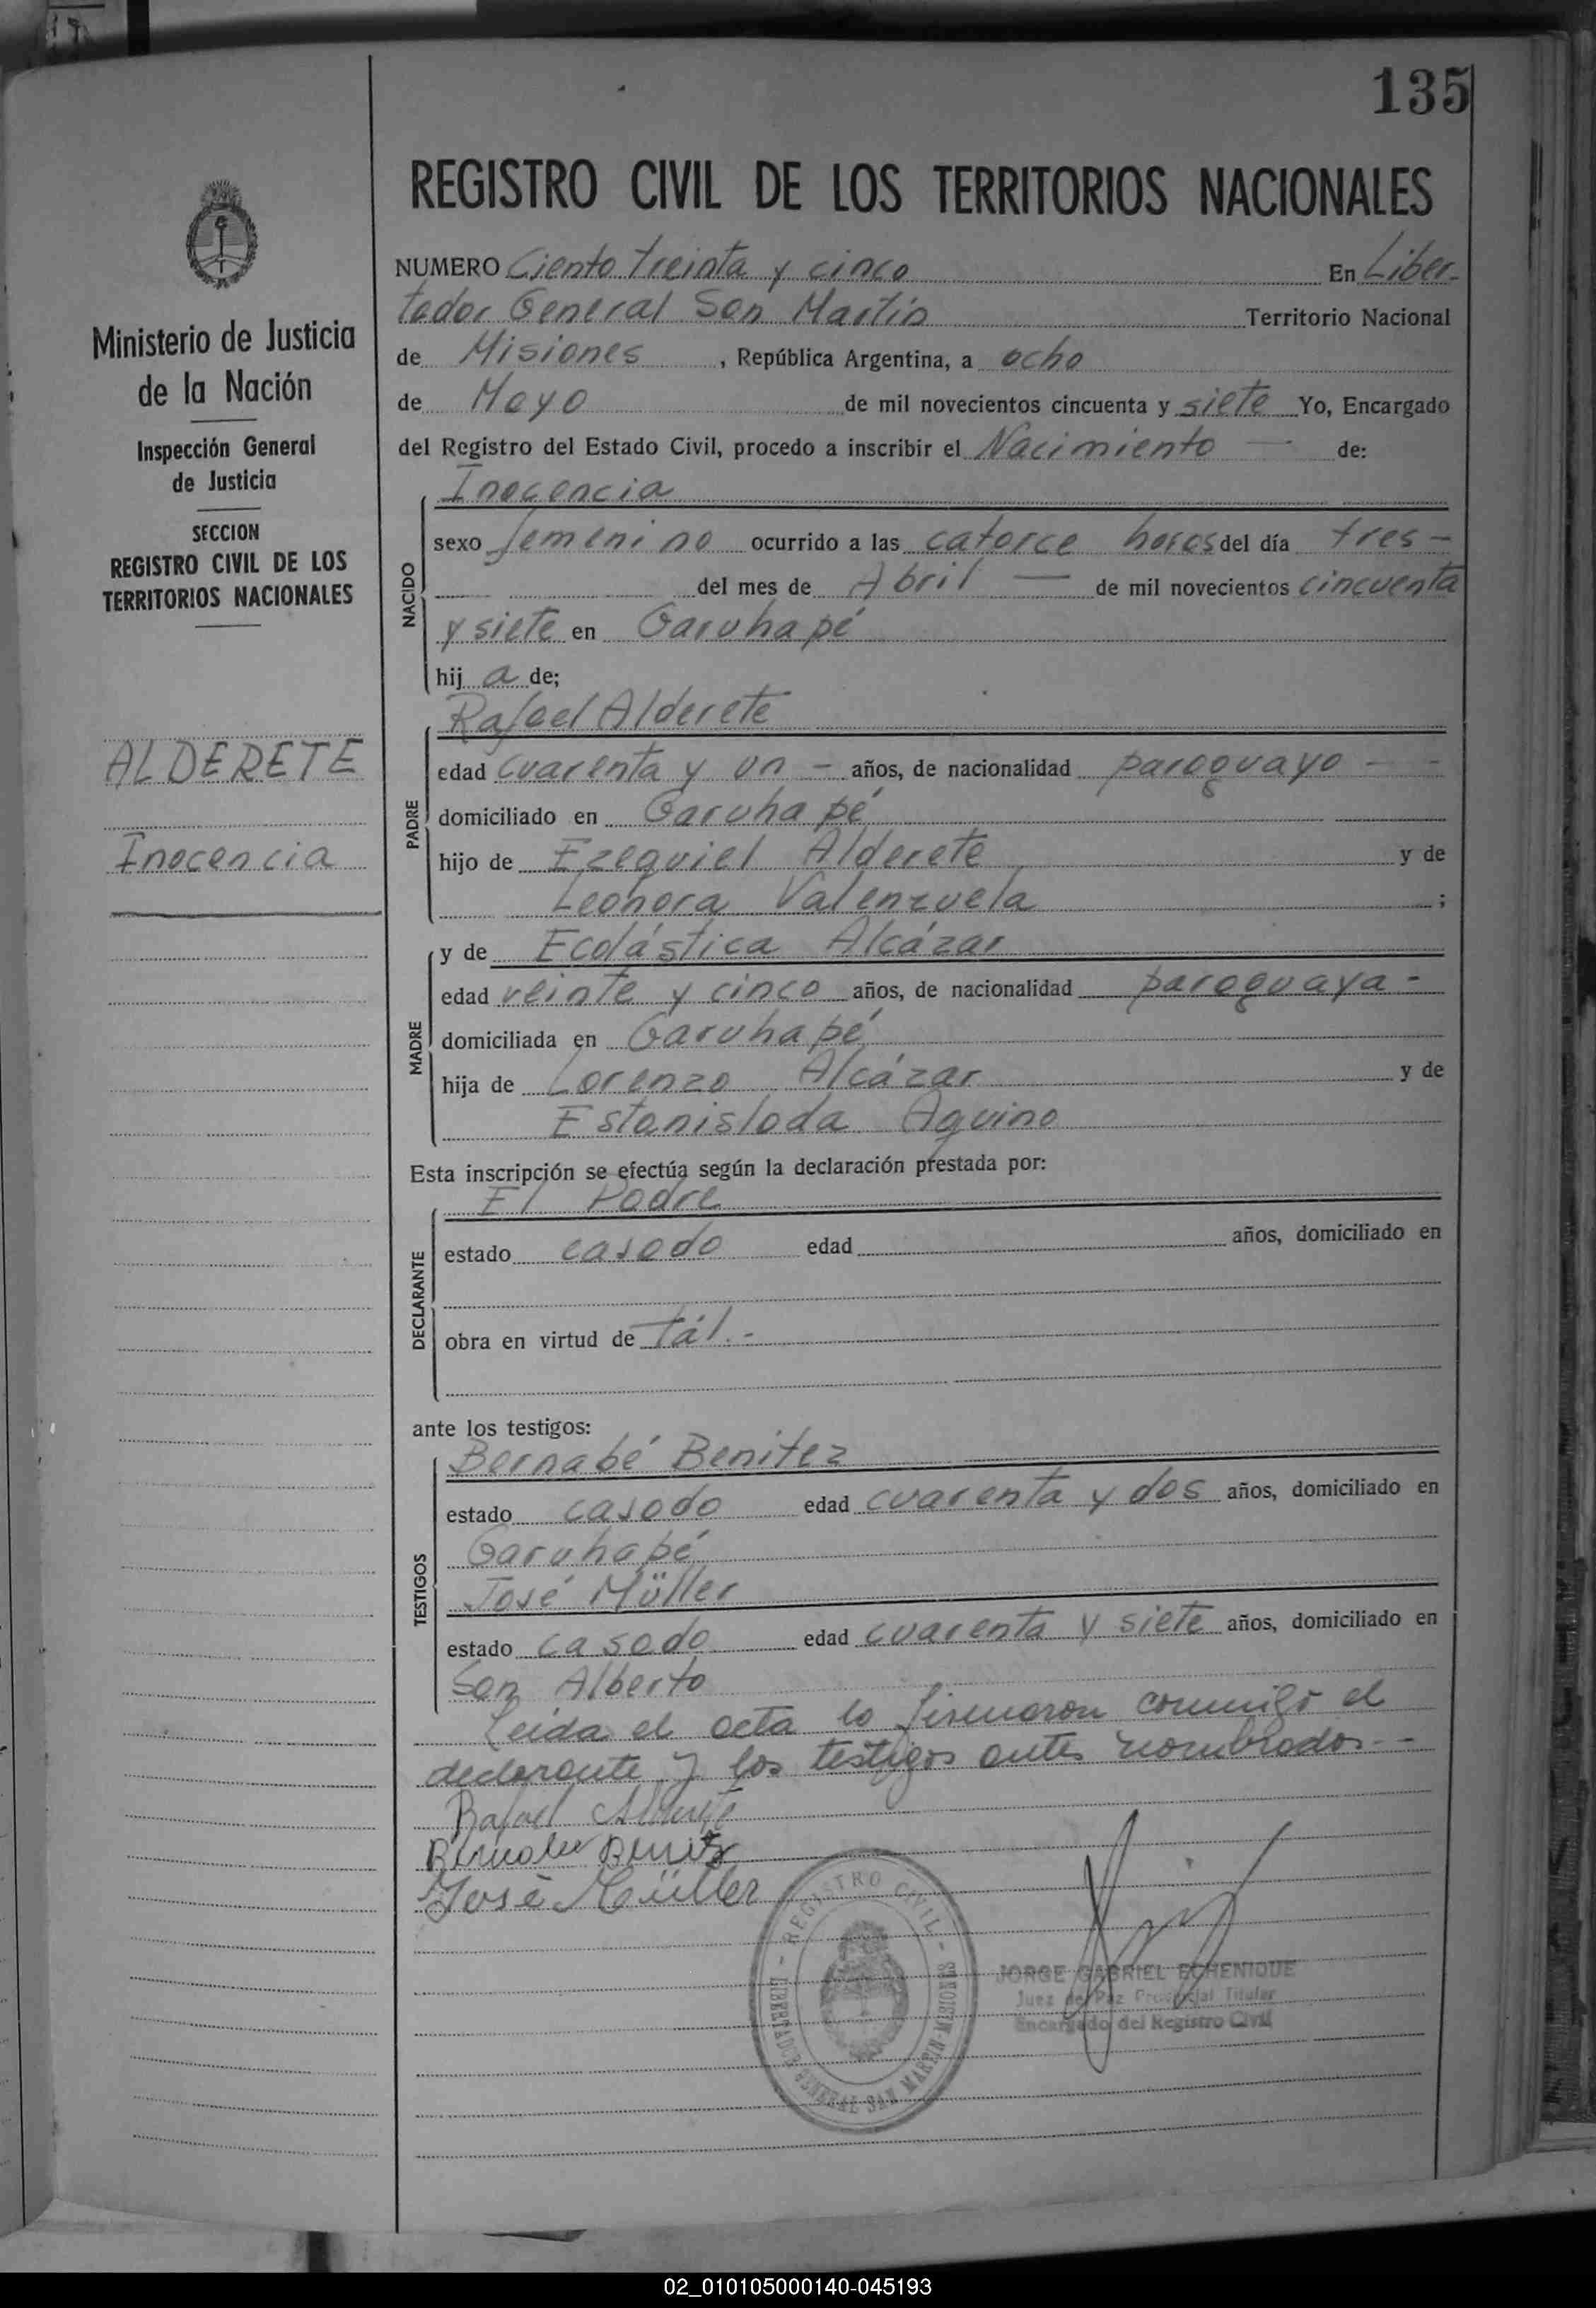 135
REGISTRO CIVIL DE LOS TERRITORIOS NACIONALES
Ministerio de Justicia
de la Nación
Inspección General
de Justicia
SECCION
REGISTRO CIVIL DE LOS
TERRITORIOS NACIONALES
ALDERETE
Inocencia
NUMERO Ciento treinta y cinco En Liber-
tador General San Martín Territorio Nacional
de Misiones, República Argentina, a ocho
de Mayo de mil novecientos cincuenta y siete Yo, Encargado
del Registro del Estado Civil, procedo a inscribir el Nacimiento — de:
NACIDO
Inocencia
sexo femenino ocurrido a las catorce horas del día tres -
del mes de Abril — de mil novecientos cincuenta
y siete en Garuhapé
hija de;
PADRE
Rafael Alderete
edad cuarenta y un - años, de nacionalidad paraguayo - -
domiciliado en Garuhapé
hijo de Ezequiel Alderete y de
Leonora Valenzuela ;
MADRE
y de Ecolástica Alcázar
edad veinte y cinco años, de nacionalidad paraguaya -
domiciliada en Garuhapé
hija de Lorenzo Alcázar y de
Estanislada Aquino
Esta inscripción se efectúa según la declaración prestada por:
DECLARANTE
El Padre
estado casado edad años, domiciliado en
obra en virtud de tál.-
ante los testigos:
TESTIGOS
Bernabé Benitez
estado casado edad cuarenta y dos años, domiciliado en
Garuhapé
José Müller
estado casado edad cuarenta y siete años, domiciliado en
San Alberto
Leida el acta la firmaron conmigo el
declarante y los testigos antes nombrados.-
Rafael Alderete
Bernabe Benitez
José Müller
REGISTRO CIVIL - LIBERTADOR GENERAL SAN MARTIN-MISIONES
JORGE GABRIEL ECHENIQUE
Juez de Paz Provincial Titular
Encargado del Registro Civil
02_010105000140-045193